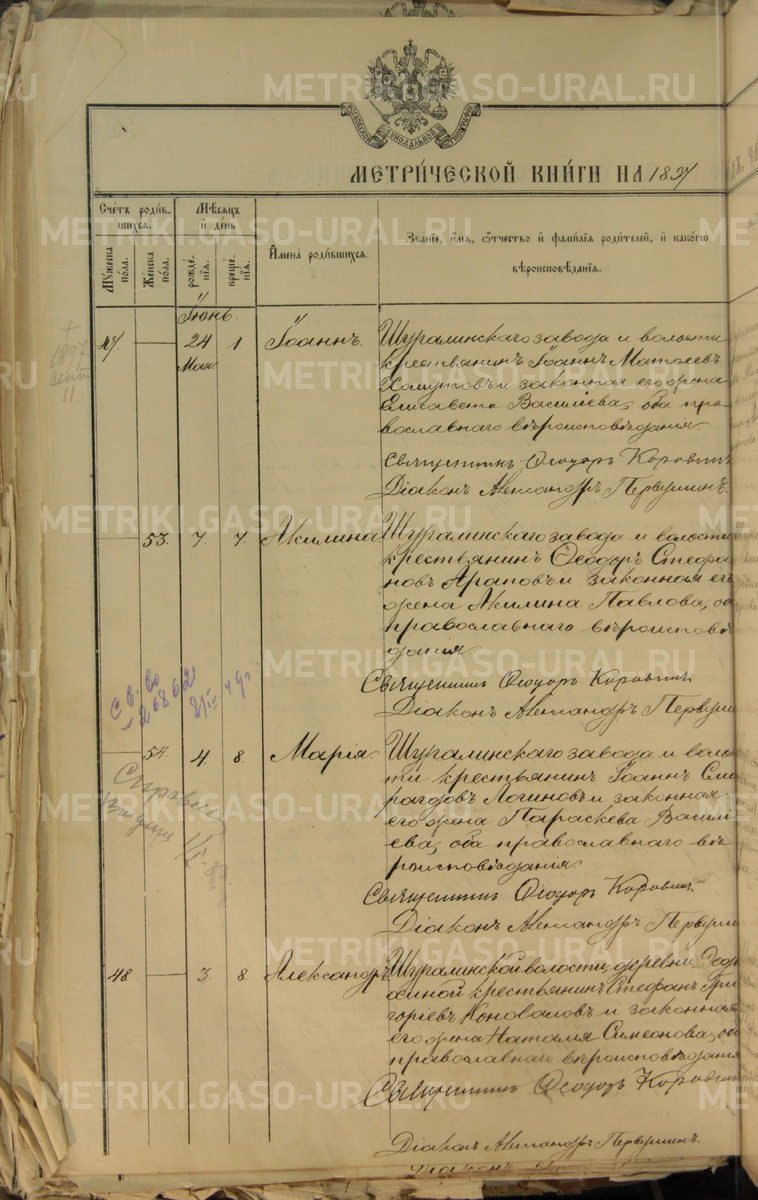 МЕТРИ́ЧЕСКОЙ КНИ́ГИ НА 1897
Сче́тъ роди́в-
шихся.
Мѣ́сяцъ
и̂ де́нь
И҆мена̀ роди́вшихся.
Зва́нїе, и҆́мя, ѻ҆́тчество и҆ фами́лїя роди́телей, и҆ како́гѡ
вѣроисповѣ́данїя.
Мꙋ́жеска по́ла.
Же́нска по́ла.
рожде́нїя.
креще́нїя.
Іюнь.
47 24 1. Іоаннъ.
Мая.
Шуралинскаго завода и волости
крестьянинъ Іоаннъ Матѳеевъ
Хомутовъ и законная его жена
Елисавета Василіева, оба пра-
вославнаго вѣроисповѣданія.
Священникъ Ѳеодоръ Коровинъ
Діаконъ Александръ Первушинъ.
53. 7. 7 Акилина
Шуралинскаго завода и волости
крестьянинъ Ѳеодоръ Стефа-
новъ Араповъ и законная его
жена Акилина Павлова, об
православнаго вѣроисповѣ
данія.
Священникъ Ѳеодоръ Коровинъ.
Діаконъ Александръ Первуши
54. 4. 8. Марія.
Шуралинскаго завода и воло
сти крестьянинъ Іоаннъ Сма
рагдовъ Логиновъ и законная
его жена Параскева Васил
іева, оба православнаго вѣ
роисповѣданія.
Священникъ Ѳеодоръ Коровинъ.
Діаконъ Александръ Первуши
48. 3. 8. Александръ
Шуралинской волости, деревни Ѳедь
киной крестьянинъ Стефанъ Гри
горьевъ Коноваловъ и законная
его жена Наталія Симеонова, оба
православнаго вѣроисповѣданія
Священникъ Ѳеодоръ Коровинъ
Діаконъ Александръ Первушинъ.
METRIKI.GASO-URAL.RU